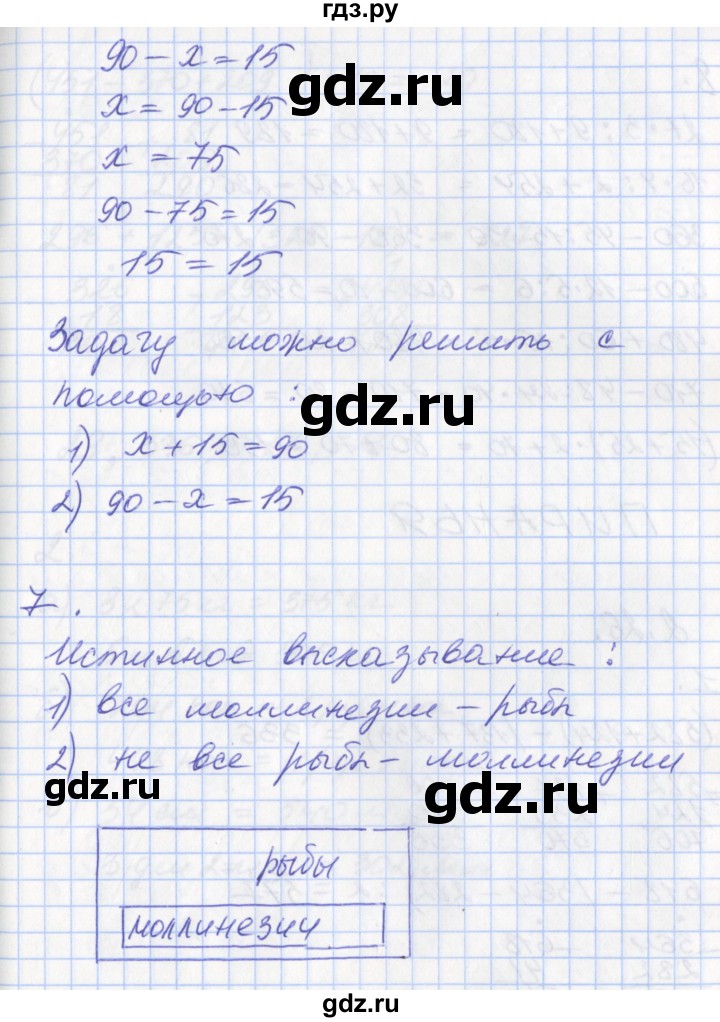 гдз.ру
90 - x = 15
x = 90 - 15
x = 75
90 - 75 = 15
15 = 15
gdz.ru
gdz.ru
Задачу можно решить с
помощью :
1) x + 15 = 90
2) 90 - x = 15
gdz.ru
7.
Истинное высказывание :
1) все моллинезии - рыбы
2) не все рыбы - моллинезии
gdz.ru
gdz.ru
рыбы
моллинезии
gdz.ru